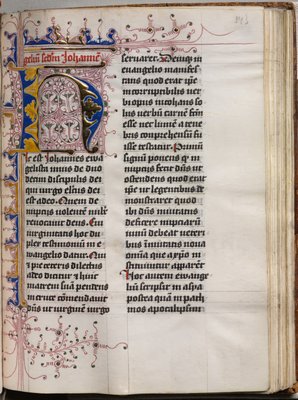 geliū scdm Johanne
H
ic est Johannes ewā
gelista unus de duo
decim discipulis dei
qui virgo electus dei
est adeo. Quem de
nuptijs volentē nubere
revocauit deus. Cui
uirginitatis hoc du
plex testimoniū in e
uangelio datur. Q
z pre ceteris dilectus
a deo dicitur z huic
matrem suā pendens
in cruce cōmendauit
dūs ut uirginē uirgo
seruaret. Deniq in
euangelio manifes
tans quod erat ipē
incorruptibilis ver
bi opus inchoans so
lus verbū carnē fcm
esse nec lumē a tene
bris comprehensū fu
isse testatur. Primū
signū ponens qd in
nuptijs fecit dūs ut
ostendens quod erat
ipē ut legentibus de
monstraret quod u
bi dūs inuitatus
deficere nuptiarū
uinū debeat ueteri
bus īmutatis noua
omīa que a xpo in
stituuntur appareāt
Hoc autem ewange
liū scripsit in asya
postea quā in path
mos apocalipsim